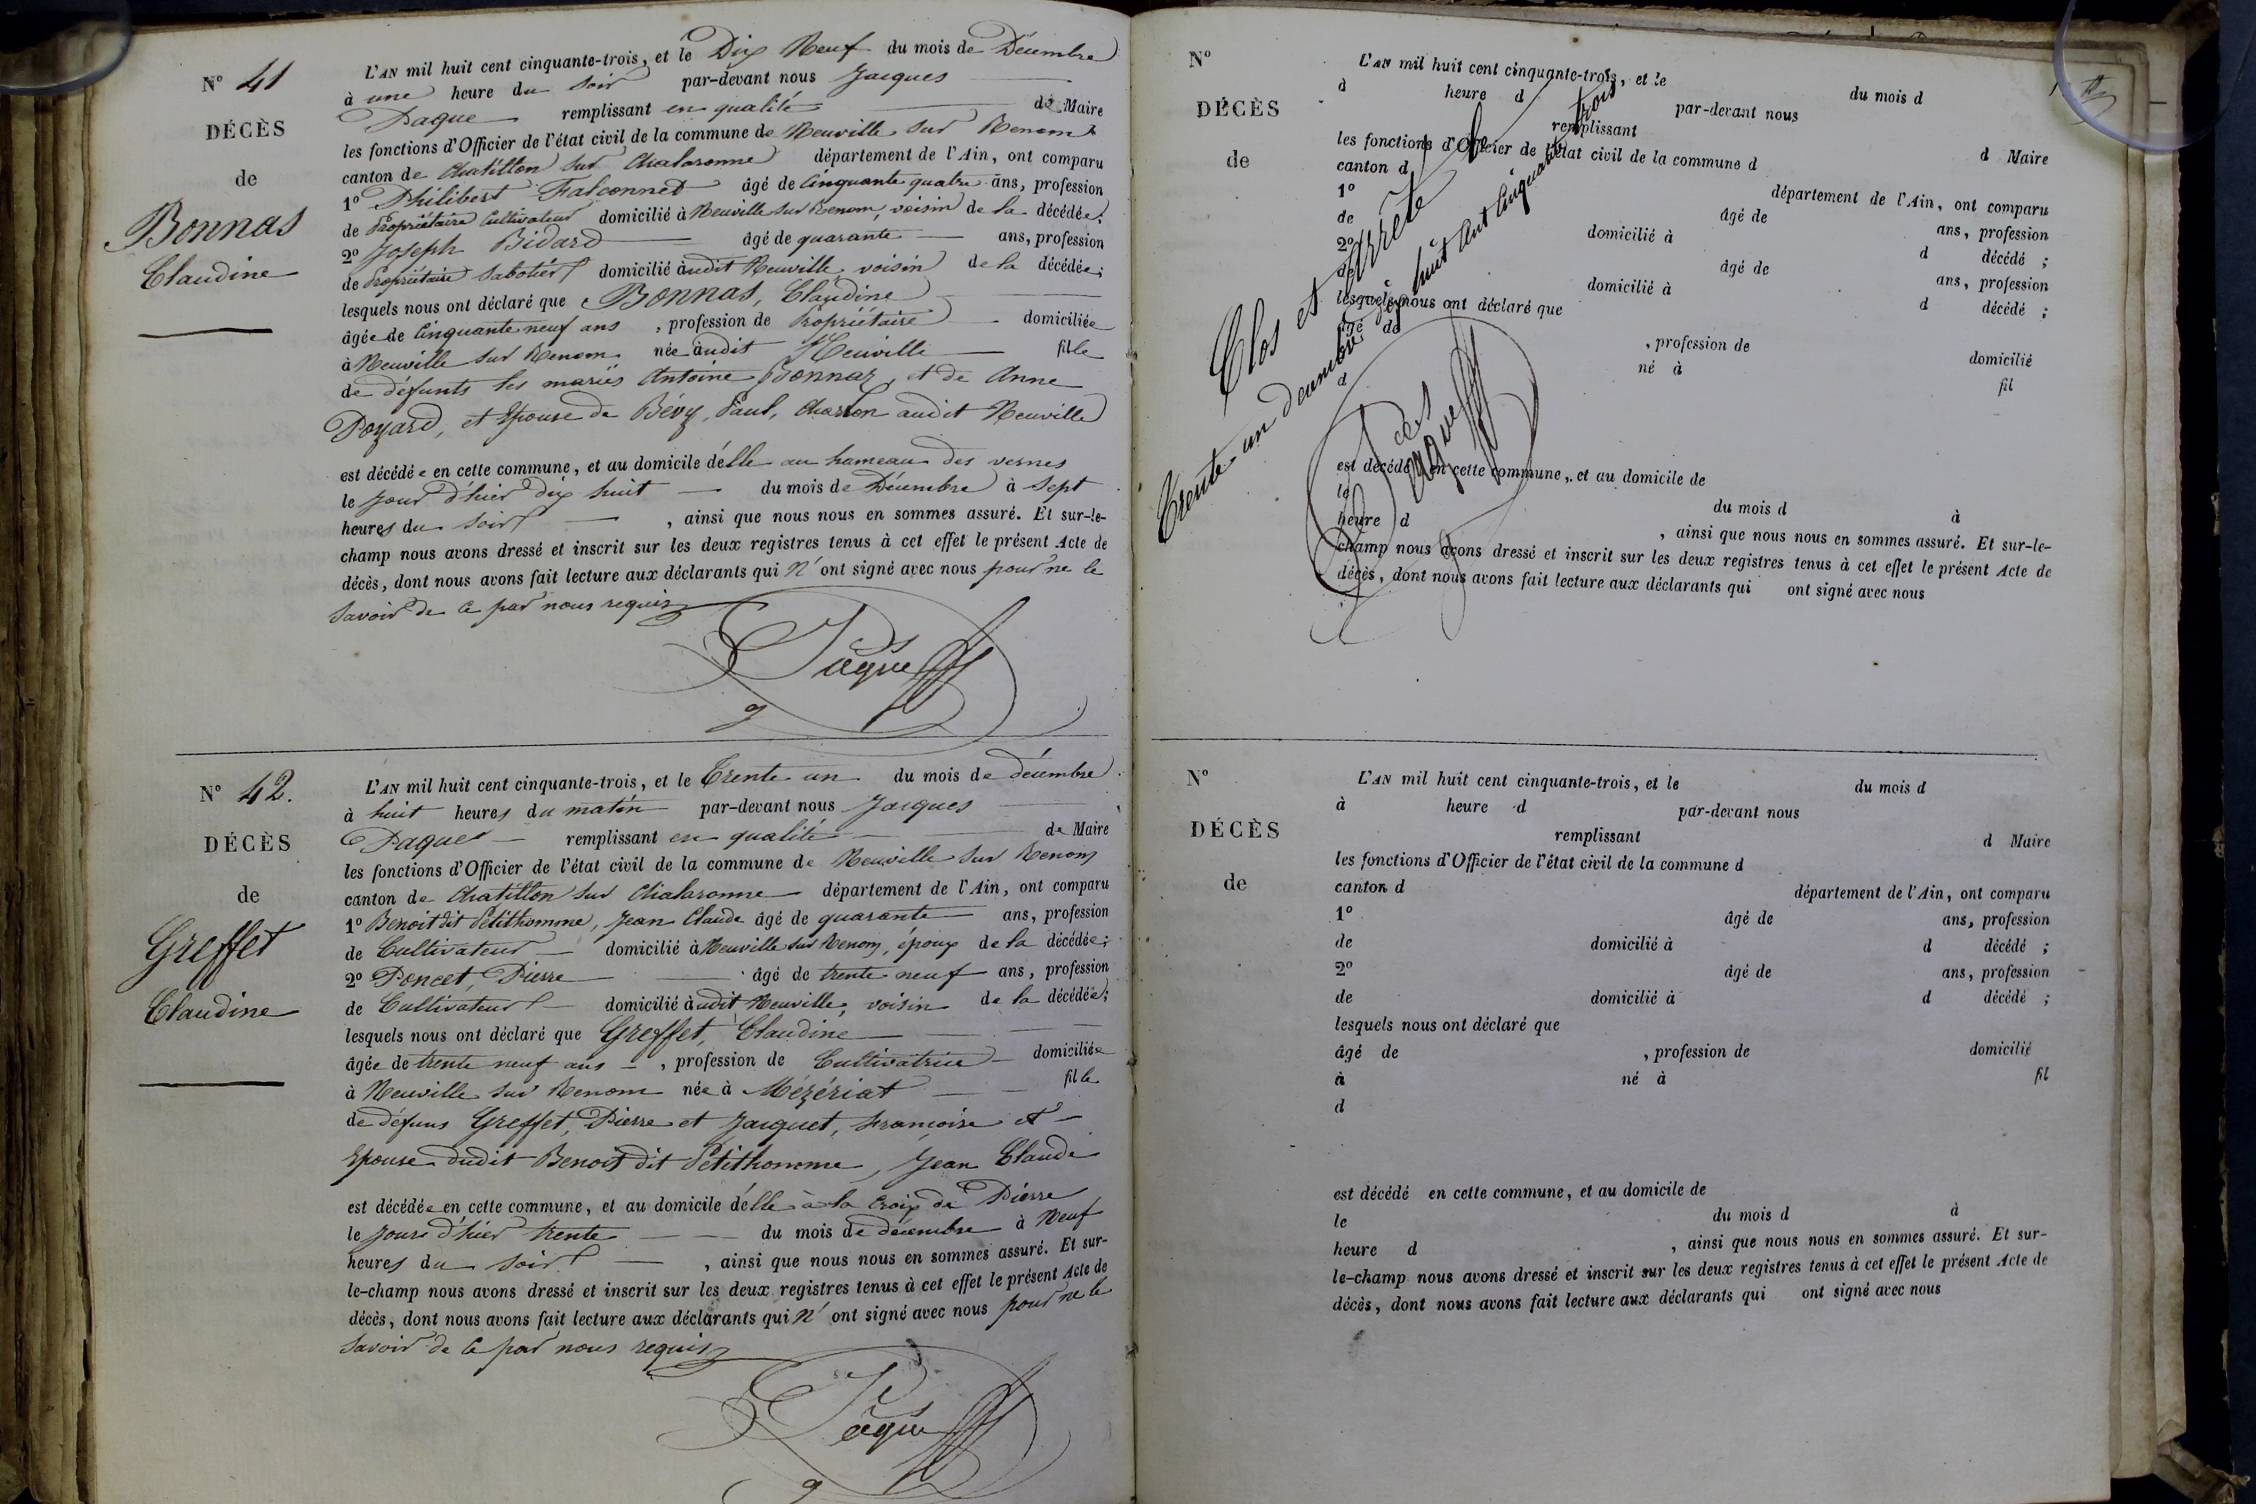 N° 41
DÉCÈS
de
Bonnas
Claudine
L'AN mil huit cent cinquante-trois, et le Dix Neuf du mois de Décembre
à une heure du soir par-devant nous Jacques
Paque remplissant en qualité de Maire
les fonctions d'Officier de l'état civil de la commune de Neuville sur Renom
canton de Chatillon sur Chalaronne département de l'Ain, ont comparu
1° Philibert Falconnet âgé de Cinquante quatre ans, profession
de Propriétaire Cultivateur domicilié à Neuville sur Renom, voisin de la décédée;
2° Joseph Bidard âgé de quarante ans, profession
de Propriétaire Sabotier domicilié audit Neuville, voisin de la décédée;
lesquels nous ont déclaré que Bonnas, Claudine
âgée de Cinquante neuf ans, profession de Propriétaire domiciliée
à Neuville sur Renom née audit Neuville fille
de défunts les mariés Antoine Bonnas, et de Anne
Poyard, et Epouse de Bévy, Paul, Charron audit Neuville
est décédée en cette commune, et au domicile d'elle au hameau des vernes
le jour d'hier dix huit du mois de Décembre à Sept
heures du soir, ainsi que nous nous en sommes assuré. Et sur-le-
champ nous avons dressé et inscrit sur les deux registres tenus à cet effet le présent Acte de
décès, dont nous avons fait lecture aux déclarants qui n'ont signé avec nous pour ne le
savoir de ce par nous requis
Pâque
N° 42.
DÉCÈS
de
Greffet
Claudine
L'AN mil huit cent cinquante-trois, et le Trente un du mois de décembre
à huit heures du matin par-devant nous Jacques
Paque remplissant en qualité de Maire
les fonctions d'Officier de l'état civil de la commune de Neuville sur Renom
canton de Chatillon sur Chalaronne département de l'Ain, ont comparu
1° Benoit dit Petithomme, Jean Claude âgé de quarante ans, profession
de Cultivateur domicilié à Neuville sur Renom, époux de la décédée;
2° Poncet, Pierre âgé de trente neuf ans, profession
de Cultivateur domicilié audit Neuville, voisin de la décédée;
lesquels nous ont déclaré que Greffet, Claudine
âgée de trente neuf ans, profession de Cultivatrice domiciliée
à Neuville sur Renom née à Mézériat fille
de défuns Greffet, Pierre et Jacquet, Françoise et
Epouse dudit Benoit dit Petithomme, Jean Claude
est décédée en cette commune, et au domicile d'elle à la Croix de Pierre
le jour d'hier trente du mois de décembre à Neuf
heures du soir, ainsi que nous nous en sommes assuré. Et sur-
le-champ nous avons dressé et inscrit sur les deux registres tenus à cet effet le présent Acte de
décès, dont nous avons fait lecture aux déclarants qui n'ont signé avec nous pour ne le
savoir de ce par nous requis
Pâque
N°
DÉCÈS
de
L'AN mil huit cent cinquante-trois, et le du mois d
à heure d par-devant nous
remplissant d Maire
les fonctions d'Officier de l'état civil de la commune d
canton d département de l'Ain, ont comparu
1° âgé de ans, profession
de domicilié à d décédé ;
2° âgé de ans, profession
de domicilié à d décédé ;
lesquels nous ont déclaré que
âgé de , profession de domicilié
né à fil
d
est décédé en cette commune, et au domicile de
le du mois d à
heure d , ainsi que nous nous en sommes assuré. Et sur-le-
champ nous avons dressé et inscrit sur les deux registres tenus à cet effet le présent Acte de
décès, dont nous avons fait lecture aux déclarants qui ont signé avec nous
Clos et Arrêté le
Trente un décembre dix huit cent cinquante trois
Pâque
N°
DÉCÈS
de
L'AN mil huit cent cinquante-trois, et le du mois d
à heure d par-devant nous
remplissant d Maire
les fonctions d'Officier de l'état civil de la commune d
canton d département de l'Ain, ont comparu
1° âgé de ans, profession
de domicilié à d décédé ;
2° âgé de ans, profession
de domicilié à d décédé ;
lesquels nous ont déclaré que
âgé de , profession de domicilié
à né à fil
d
est décédé en cette commune, et au domicile de
le du mois d à
heure d , ainsi que nous nous en sommes assuré. Et sur-
le-champ nous avons dressé et inscrit sur les deux registres tenus à cet effet le présent Acte de
décès, dont nous avons fait lecture aux déclarants qui ont signé avec nous